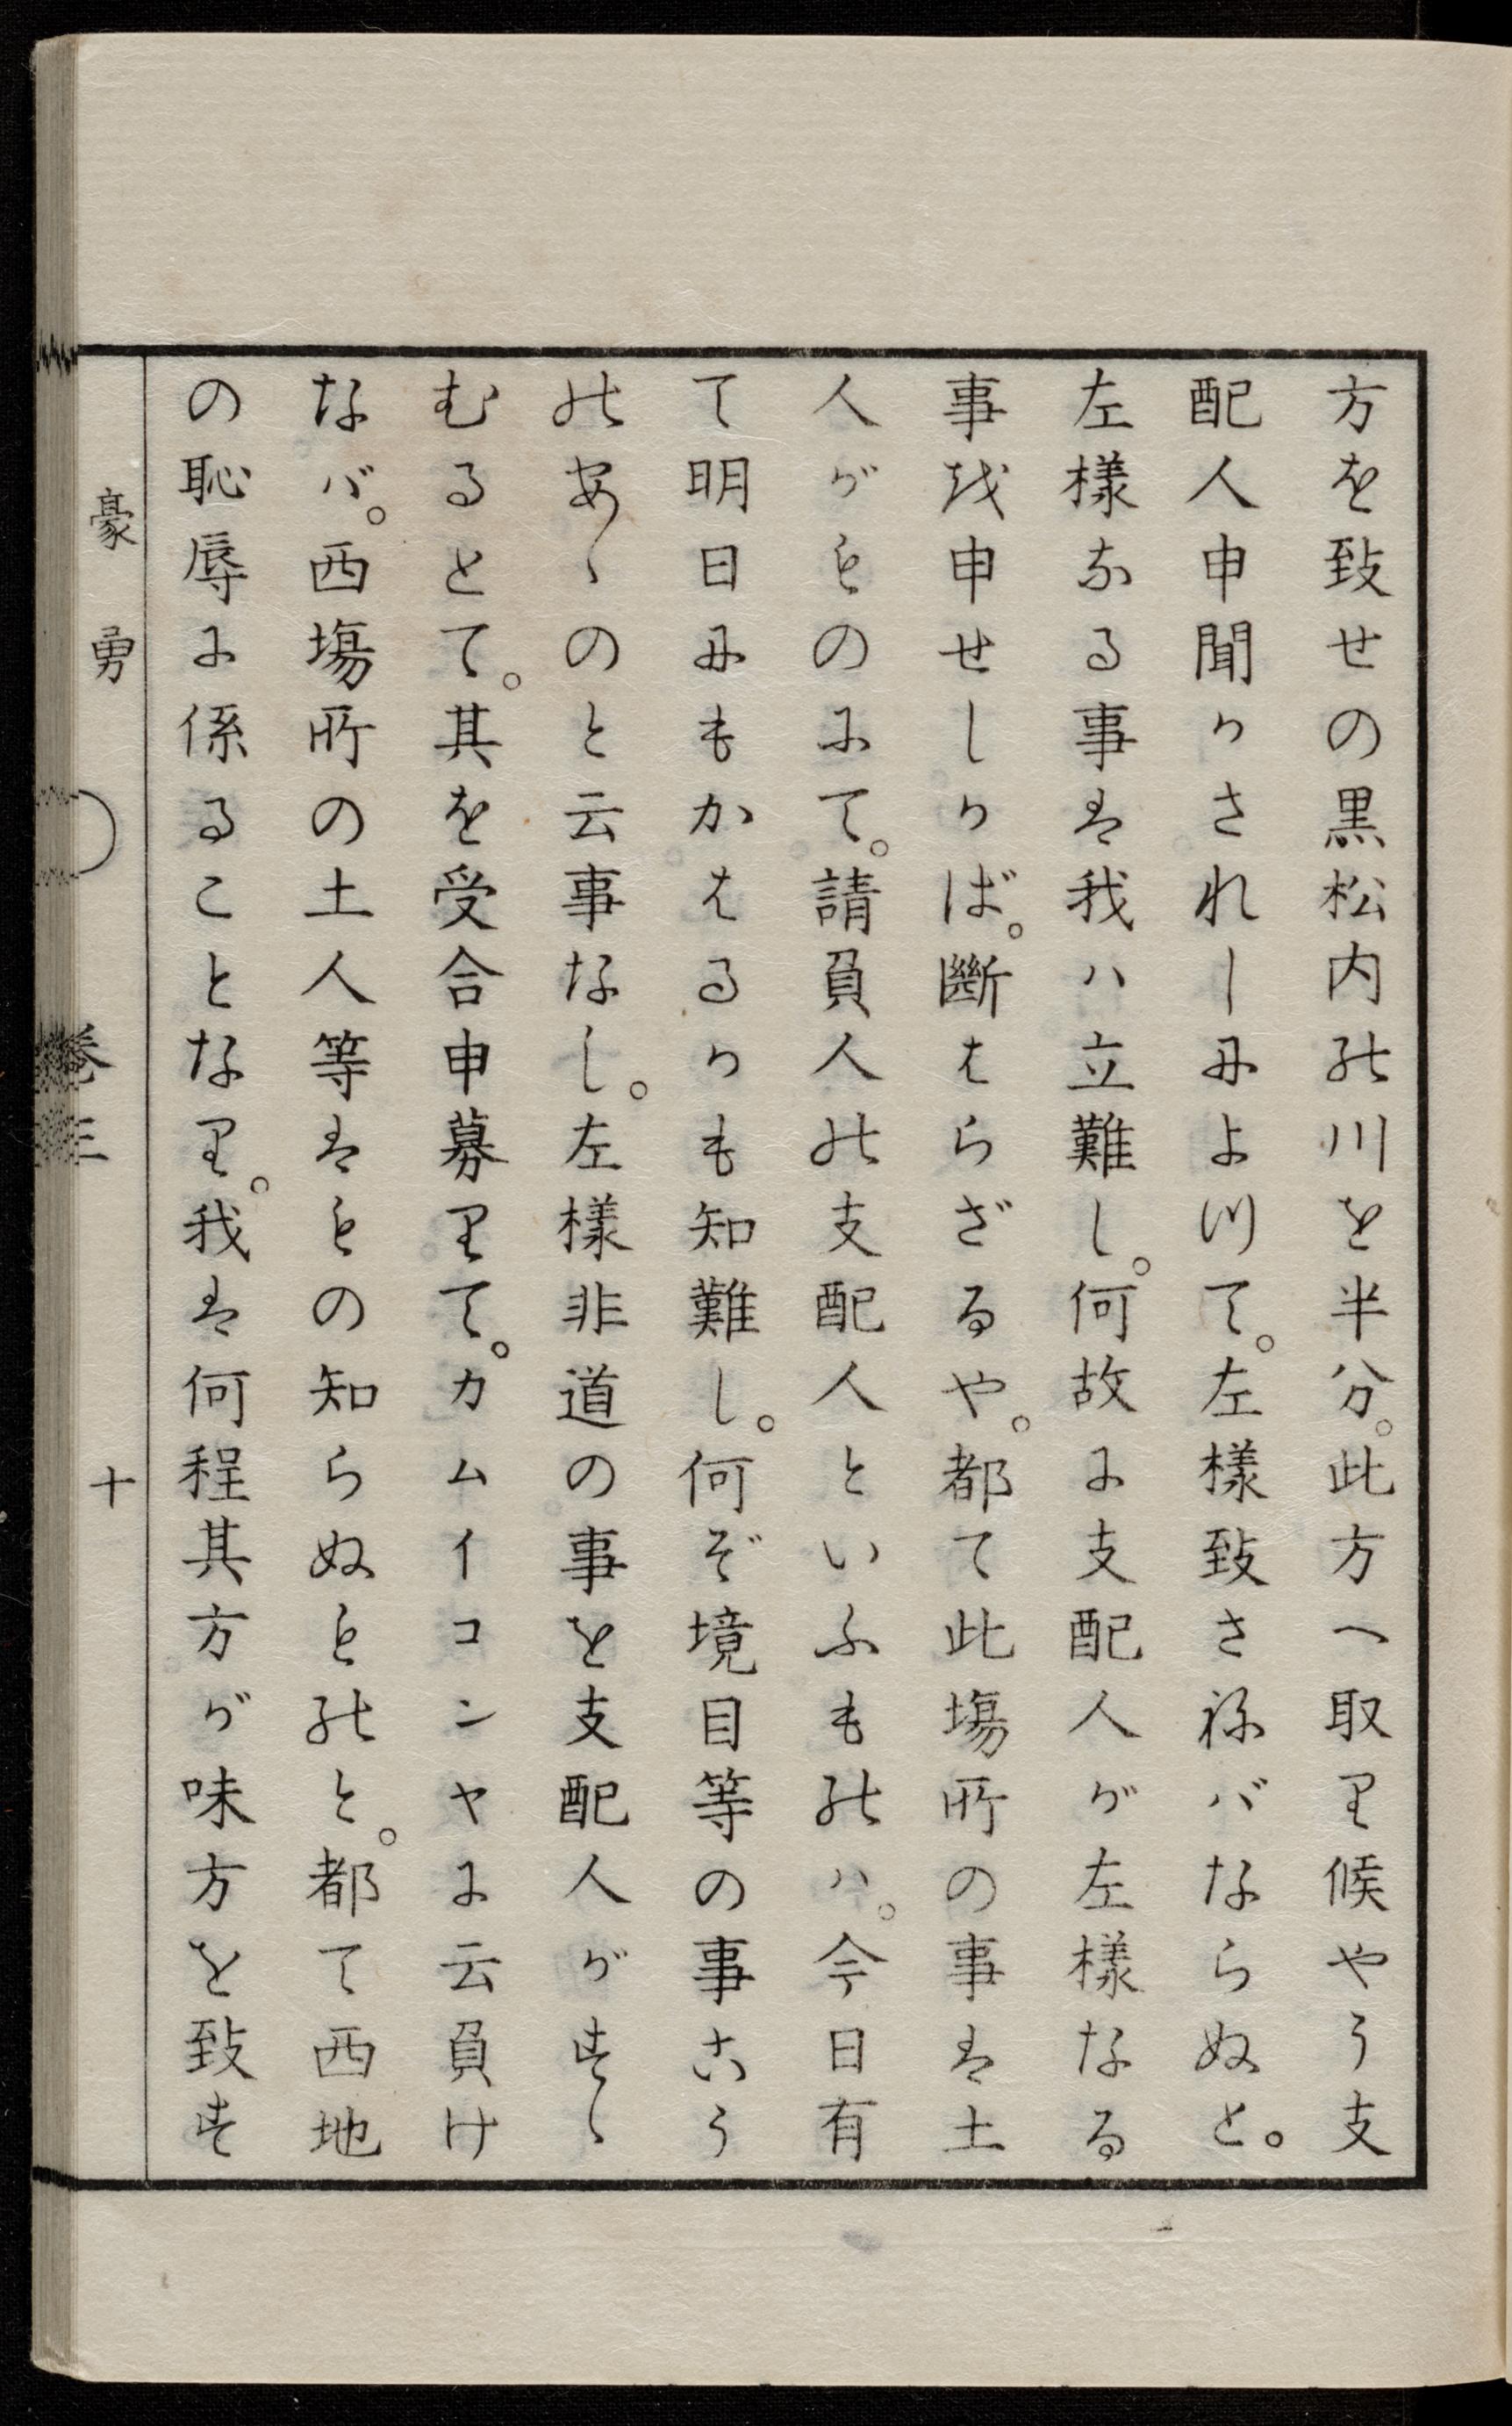 方を致せの黒松内の川を半分。此方へ取り候やう支
配人申聞かされしによつて。左樣致さねバならぬと。
左樣なる事は我ハ立難し。何故に支配人が左樣なる
事を申せしかば。斷はらざるや。都て此塲所の事は土
人がものにて。請負人の支配人といふものハ。今日有
て明日にもかはるかも知難し。何ぞ境目等の事こう
のあゝのと云事なし。左樣非道の事を支配人がすゝ
むるとて。其を受合申募りて。カムイコンヤに云負け
なバ。西塲所の土人等はもの知らぬものと。都て西地
の恥辱に係ることなり。我は何程其方が味方を致す
豪勇 卷三 十